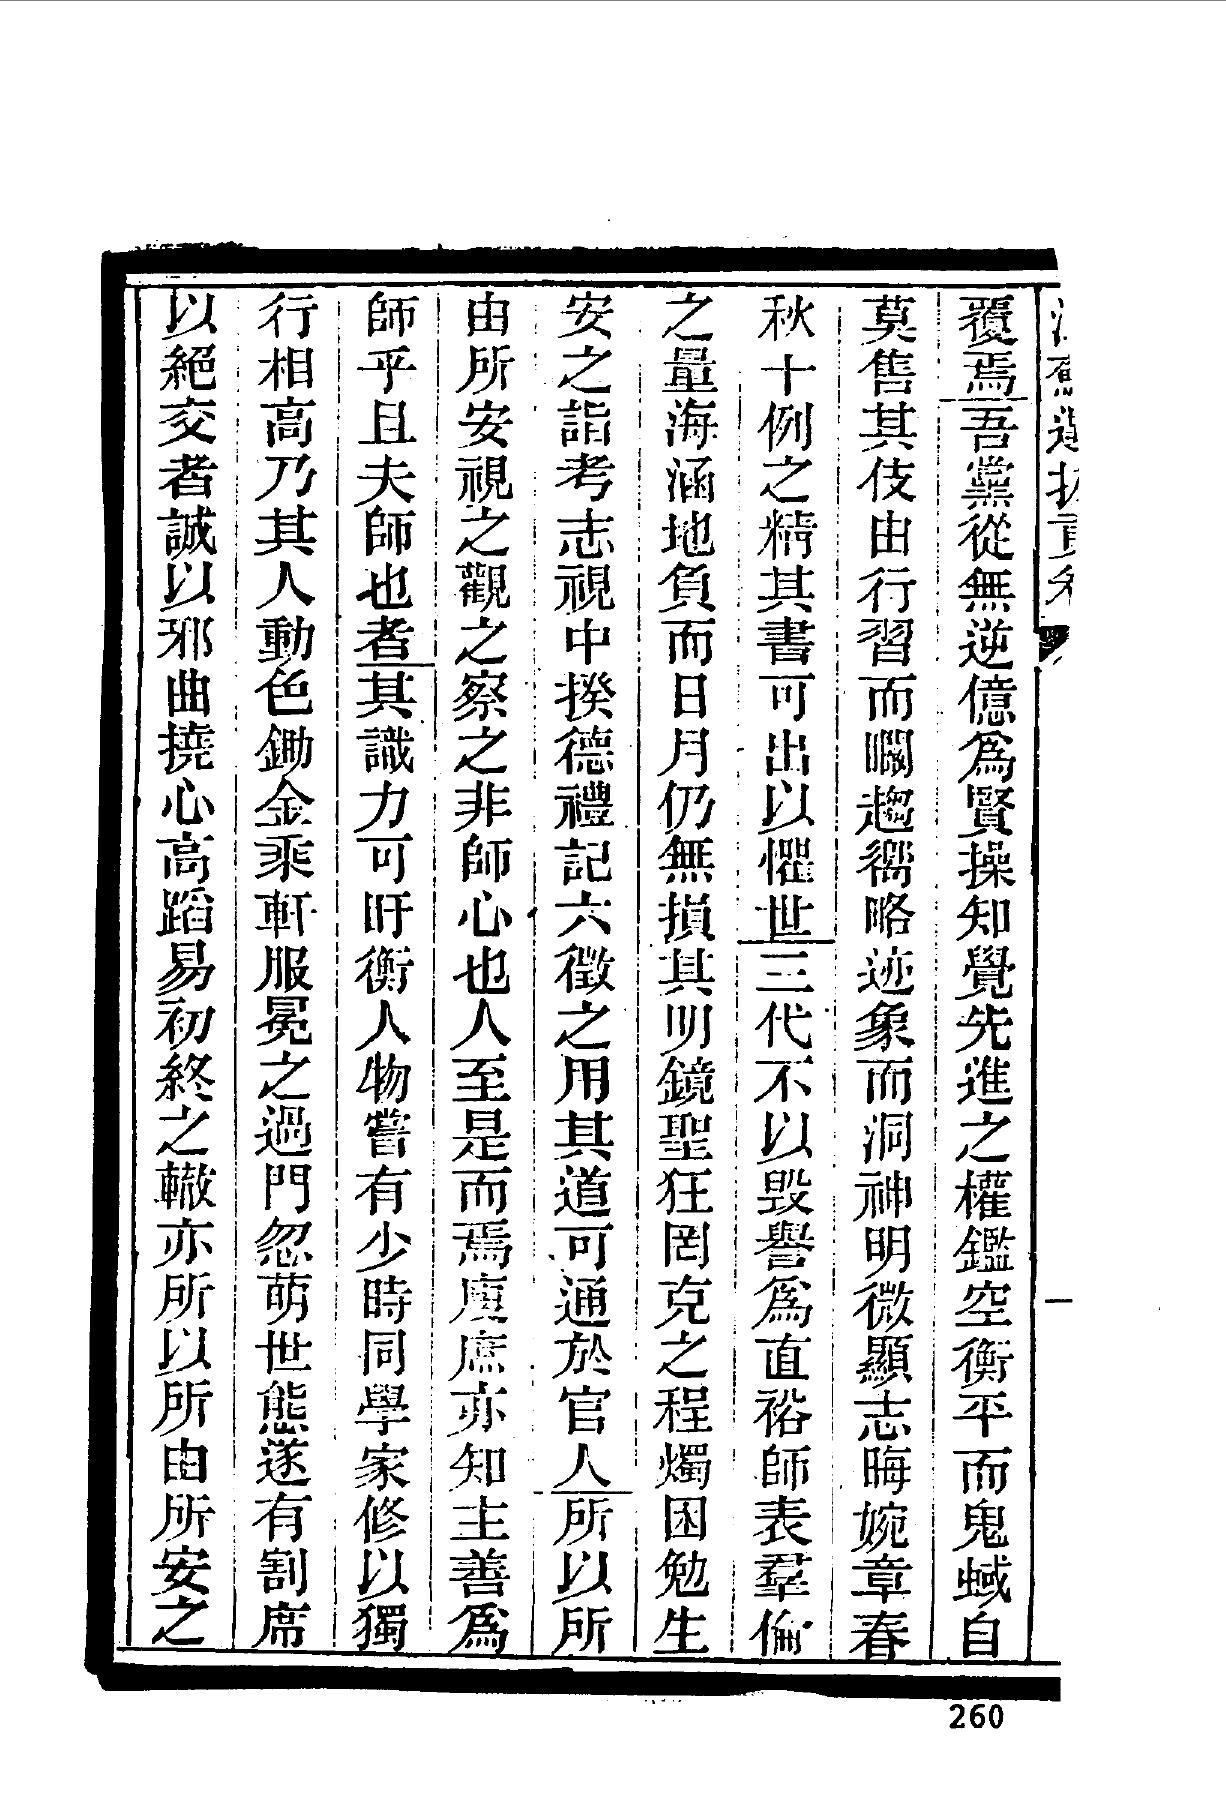 覆焉吾黨從無逆億爲賢操知覺先進之權鑑空衡平而鬼蜮自
莫售其伎由行習而瞷趨嚮略迹象而洞神明微顯志晦婉章春
秋十例之精其書可出以懼世三代不以毀譽爲直裕師表羣倫
之量海涵地負而日月仍無損其明鏡聖狂罔克之程燭困勉生
安之詣考志視中揆德禮記六徵之用其道可通於官人所以所
由所安視之觀之察之非師心也人至是而焉廋庶亦知主善爲
師乎且夫師也者其識力可盱衡人物嘗有少時同學家修以獨
行相高乃其人動色鋤金乘軒服冕之過門忽萌世態遂有割席
以絕交者誠以邪曲撓心高蹈易初終之轍亦所以所由所安之
260